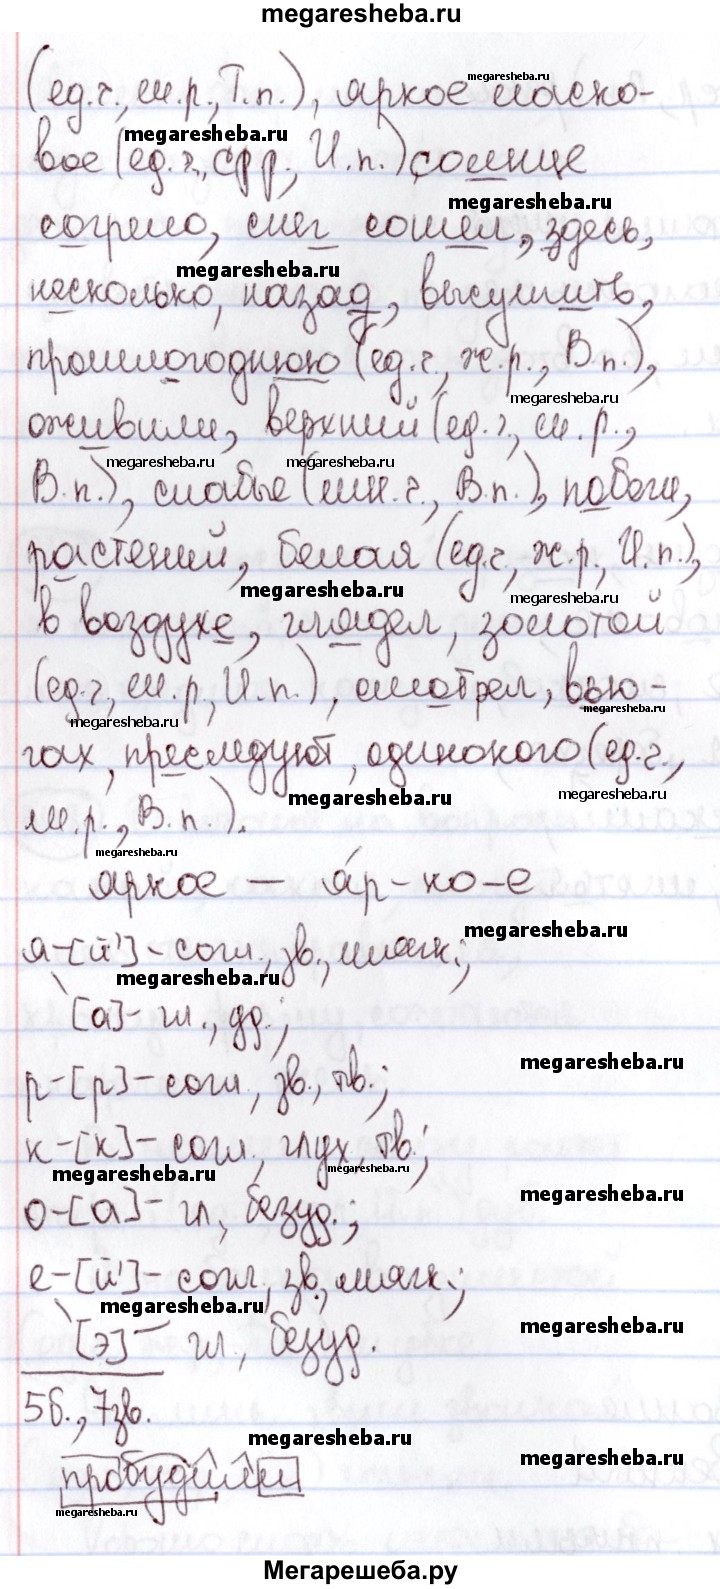 megaresheba.ru
(ед.ч., м.р., Т.п.), яркое ласко-
megaresheba.ru
megaresheba.ru
вое (ед.ч., ср.р., И.п.) солнце
megaresheba.ru
согрело, снег сошел, здесь,
megaresheba.ru
несколько, назад, высушить,
прошлогоднюю (ед.ч., ж.р., В.п.),
megaresheba.ru
оживили, верхний (ед.ч., м.р.,
megaresheba.ru megaresheba.ru
В.п.), слабые (мн.ч., В.п.), побеги,
растений, белая (ед.ч., ж.р., И.п.),
megaresheba.ru megaresheba.ru
в воздухе, глядел, золотой
(ед.ч., м.р., И.п.), смотрел, вью-
megaresheba.ru megaresheba.ru
гах, преследуют, одинокого (ед.ч.,
megaresheba.ru megaresheba.ru
м.р., В.п.).
megaresheba.ru
яркое — я́р-ко-е
megaresheba.ru
я-[й']-согл., зв., мягк.;
megaresheba.ru
[а]-гл., уд.;
megaresheba.ru
р-[р]-согл., зв., тв.;
к-[к]-согл., глух., тв.;
megaresheba.ru megaresheba.ru
megaresheba.ru
о-[а]-гл., безуд.;
е-[й']-согл., зв., мягк.;
megaresheba.ru
megaresheba.ru
[э]-гл., безуд.
5б., 7зв.
megaresheba.ru
megaresheba.ru
пробудили
megaresheba.ru
Мегарешеба.ру